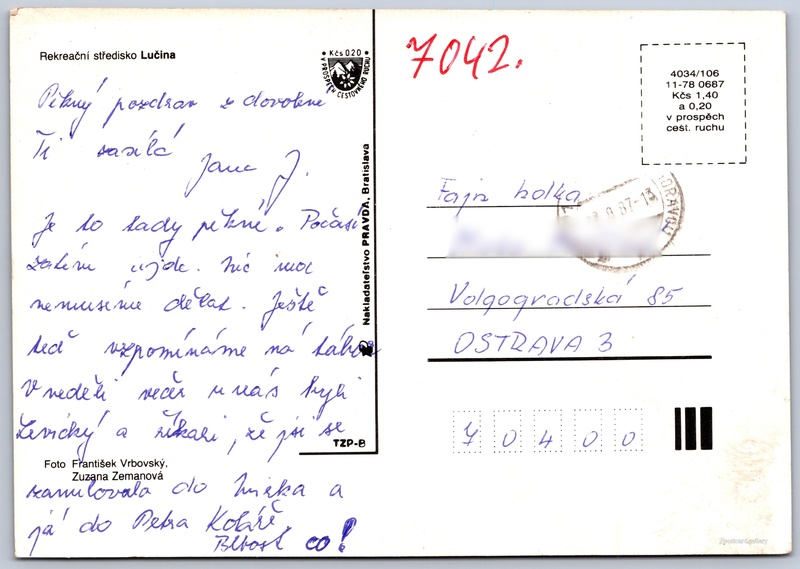 Rekreační středisko Lučina
Kčs 0 20
V PROSPĚCH CESTOVNÉHO RUCHU
Pěkný pozdrav z dovolené
Ti zasílá
Jana J.
Je to tady pěkné. Počasí
zatím ujde. Nic moc
nemusíme dělat. Ještě
teď vzpomínáme na tábor
V neděli večer u nás byli
Levický a říkali, že jsi se
zamilovala do Mirka a
já do Petra Koláře.
Blbost co!
Foto František Vrbovský,
Zuzana Zemanová
Nakladatelstvo PRAVDA, Bratislava
TZP-B
7042.
4034/106
11-78 0687
Kčs 1,40
a 0,20
v prospěch
cest. ruchu
Fajn holka
87-13
Volgogradská 85
OSTRAVA 3
7 0 4 0 0